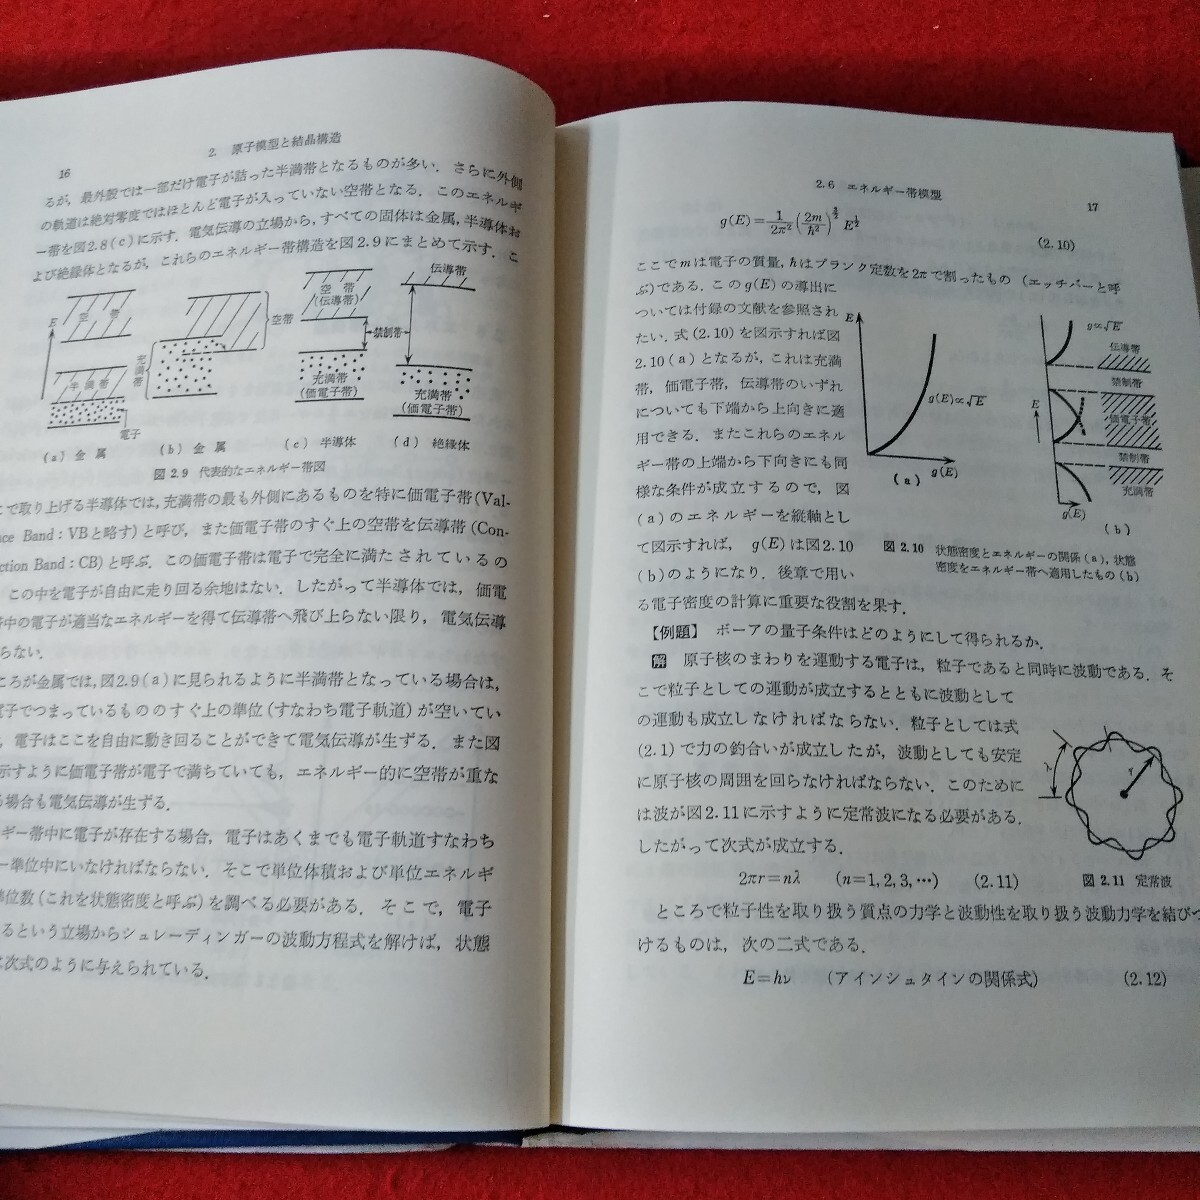 16
2. 原子模型と結晶構造
るが,最外殻では一部だけ電子が詰った半満帯となるものが多い.さらに外側
の軌道は絶対零度ではほとんど電子が入っていない空帯となる.このエネルギ
ー帯を図2.8(c)に示す.電気伝導の立場から,すべての固体は金属,半導体お
よび絶縁体となるが,これらのエネルギー帯構造を図2.9にまとめて示す.こ
E
空 帯
半 満 帯
電子
(a) 金 属
充満帯
空帯
(b) 金 属
空 帯
(伝導帯)
禁制帯
充満帯
(価電子帯)
(c) 半導体
伝導帯
充満帯
(価電子帯)
(d) 絶縁体
図2.9 代表的なエネルギー帯図
で取り上げる半導体では,充満帯の最も外側にあるものを特に価電子帯(Val-
ce Band:VBと略す)と呼び,また価電子帯のすぐ上の空帯を伝導帯(Con-
ction Band:CB)と呼ぶ.この価電子帯は電子で完全に満たされているの
この中を電子が自由に走り回る余地はない.したがって半導体では,価電
中の電子が適当なエネルギーを得て伝導帯へ飛び上らない限り,電気伝導
らない.
ころが金属では,図2.9(a)に見られるように半満帯となっている場合は,
電子でつまっているもののすぐ上の準位(すなわち電子軌道)が空いてい
,電子はここを自由に動き回ることができて電気伝導が生ずる.また図
示すように価電子帯が電子で満ちていても,エネルギー的に空帯が重な
場合も電気伝導が生ずる.
ギー帯中に電子が存在する場合,電子はあくまでも電子軌道すなわち
ー準位中にいなければならない.そこで単位体積および単位エネルギ
位数(これを状態密度と呼ぶ)を調べる必要がある.そこで,電子
るという立場からシュレーディンガーの波動方程式を解けば,状態
次式のように与えられている.
2.6 エネルギー帯模型
17
g(E)=1/2π²(2m/ħ²)^{3/2}E^{1/2} (2.10)
ここでmは電子の質量,ħはプランク定数を2πで割ったもの(エッチバーと呼
ぶ)である.このg(E)の導出に
ついては付録の文献を参照され
たい.式(2.10)を図示すれば図
2.10(a)となるが,これは充満
帯,価電子帯,伝導帯のいずれ
についても下端から上向きに適
用できる.またこれらのエネル
ギー帯の上端から下向きにも同
様な条件が成立するので,図
(a)のエネルギーを縦軸とし
て図示すれば,g(E)は図2.10
(b)のようになり,後章で用い
る電子密度の計算に重要な役割を果す.
E
g(E)∝√E
g(E)
(a)
g∝√E
伝導帯
禁制帯
E
価電子帯
禁制帯
充満帯
g(E)
(b)
図2.10 状態密度とエネルギーの関係(a),状態
密度をエネルギー帯へ適用したもの(b)
【例題】 ボーアの量子条件はどのようにして得られるか.
解 原子核のまわりを運動する電子は,粒子であると同時に波動である.そ
こで粒子としての運動が成立するとともに波動として
の運動も成立しなければならない.粒子としては式
(2.1)で力の釣合いが成立したが,波動としても安定
に原子核の周囲を回らなければならない.このために
は波が図2.11に示すように定常波になる必要がある.
したがって次式が成立する.
2πr=nλ (n=1,2,3,…) (2.11)
λ
r
図2.11 定常波
ところで粒子性を取り扱う質点の力学と波動性を取り扱う波動力学を結びつ
けるものは,次の二式である.
E=hν (アインシュタインの関係式) (2.12)